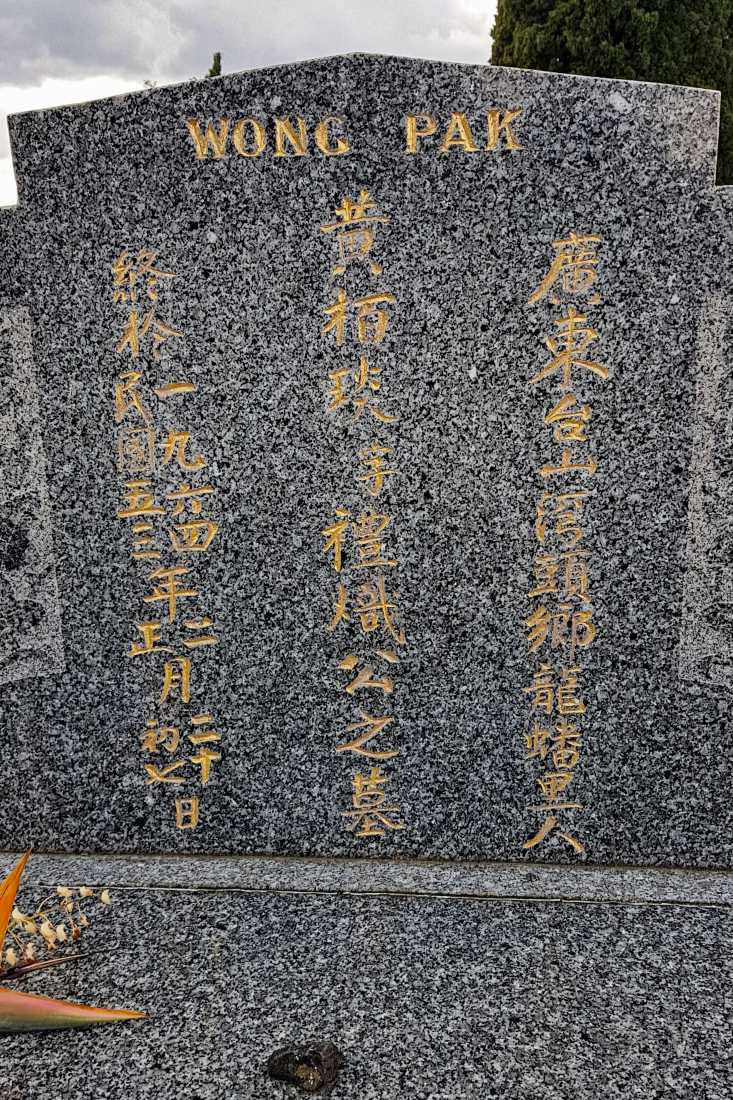 WONG PAK
廣東台山頭鄉龍蟠里人
黃栢琰字禮熾公之墓
終於一九六四年二月二十日
民國五三年正月初七日